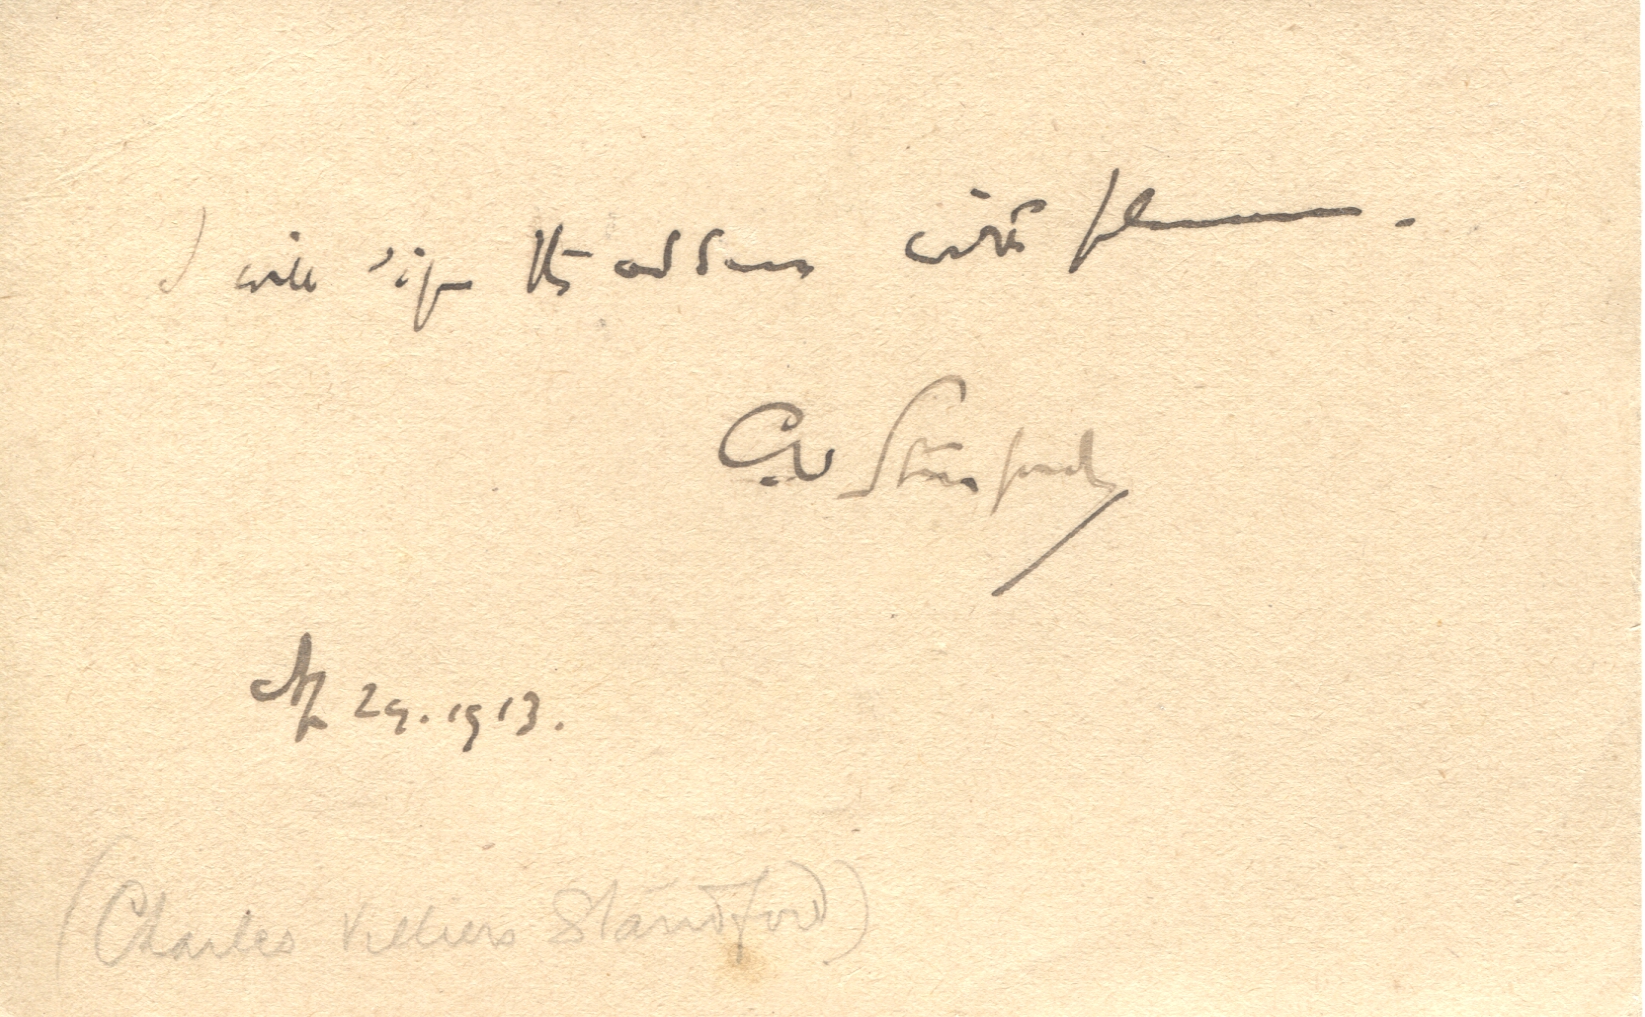 I will sign the address with pleasure.
C.V Stanford
Ap 29. 1913.
(Charles Villiers Standford)